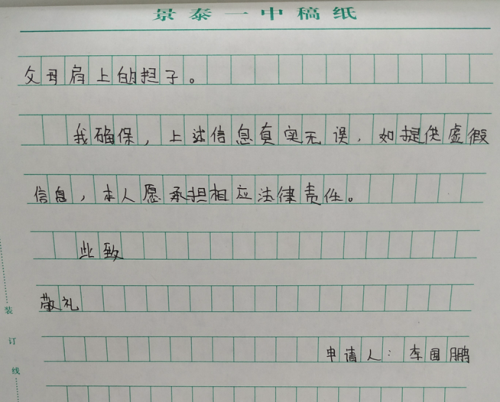 景泰一中稿纸
父母肩上的担子。
我确保，上述信息真实无误，如提供虚假
信息，本人愿承担相应法律责任。
此致
敬礼
申请人：李国鹏
装
订
线